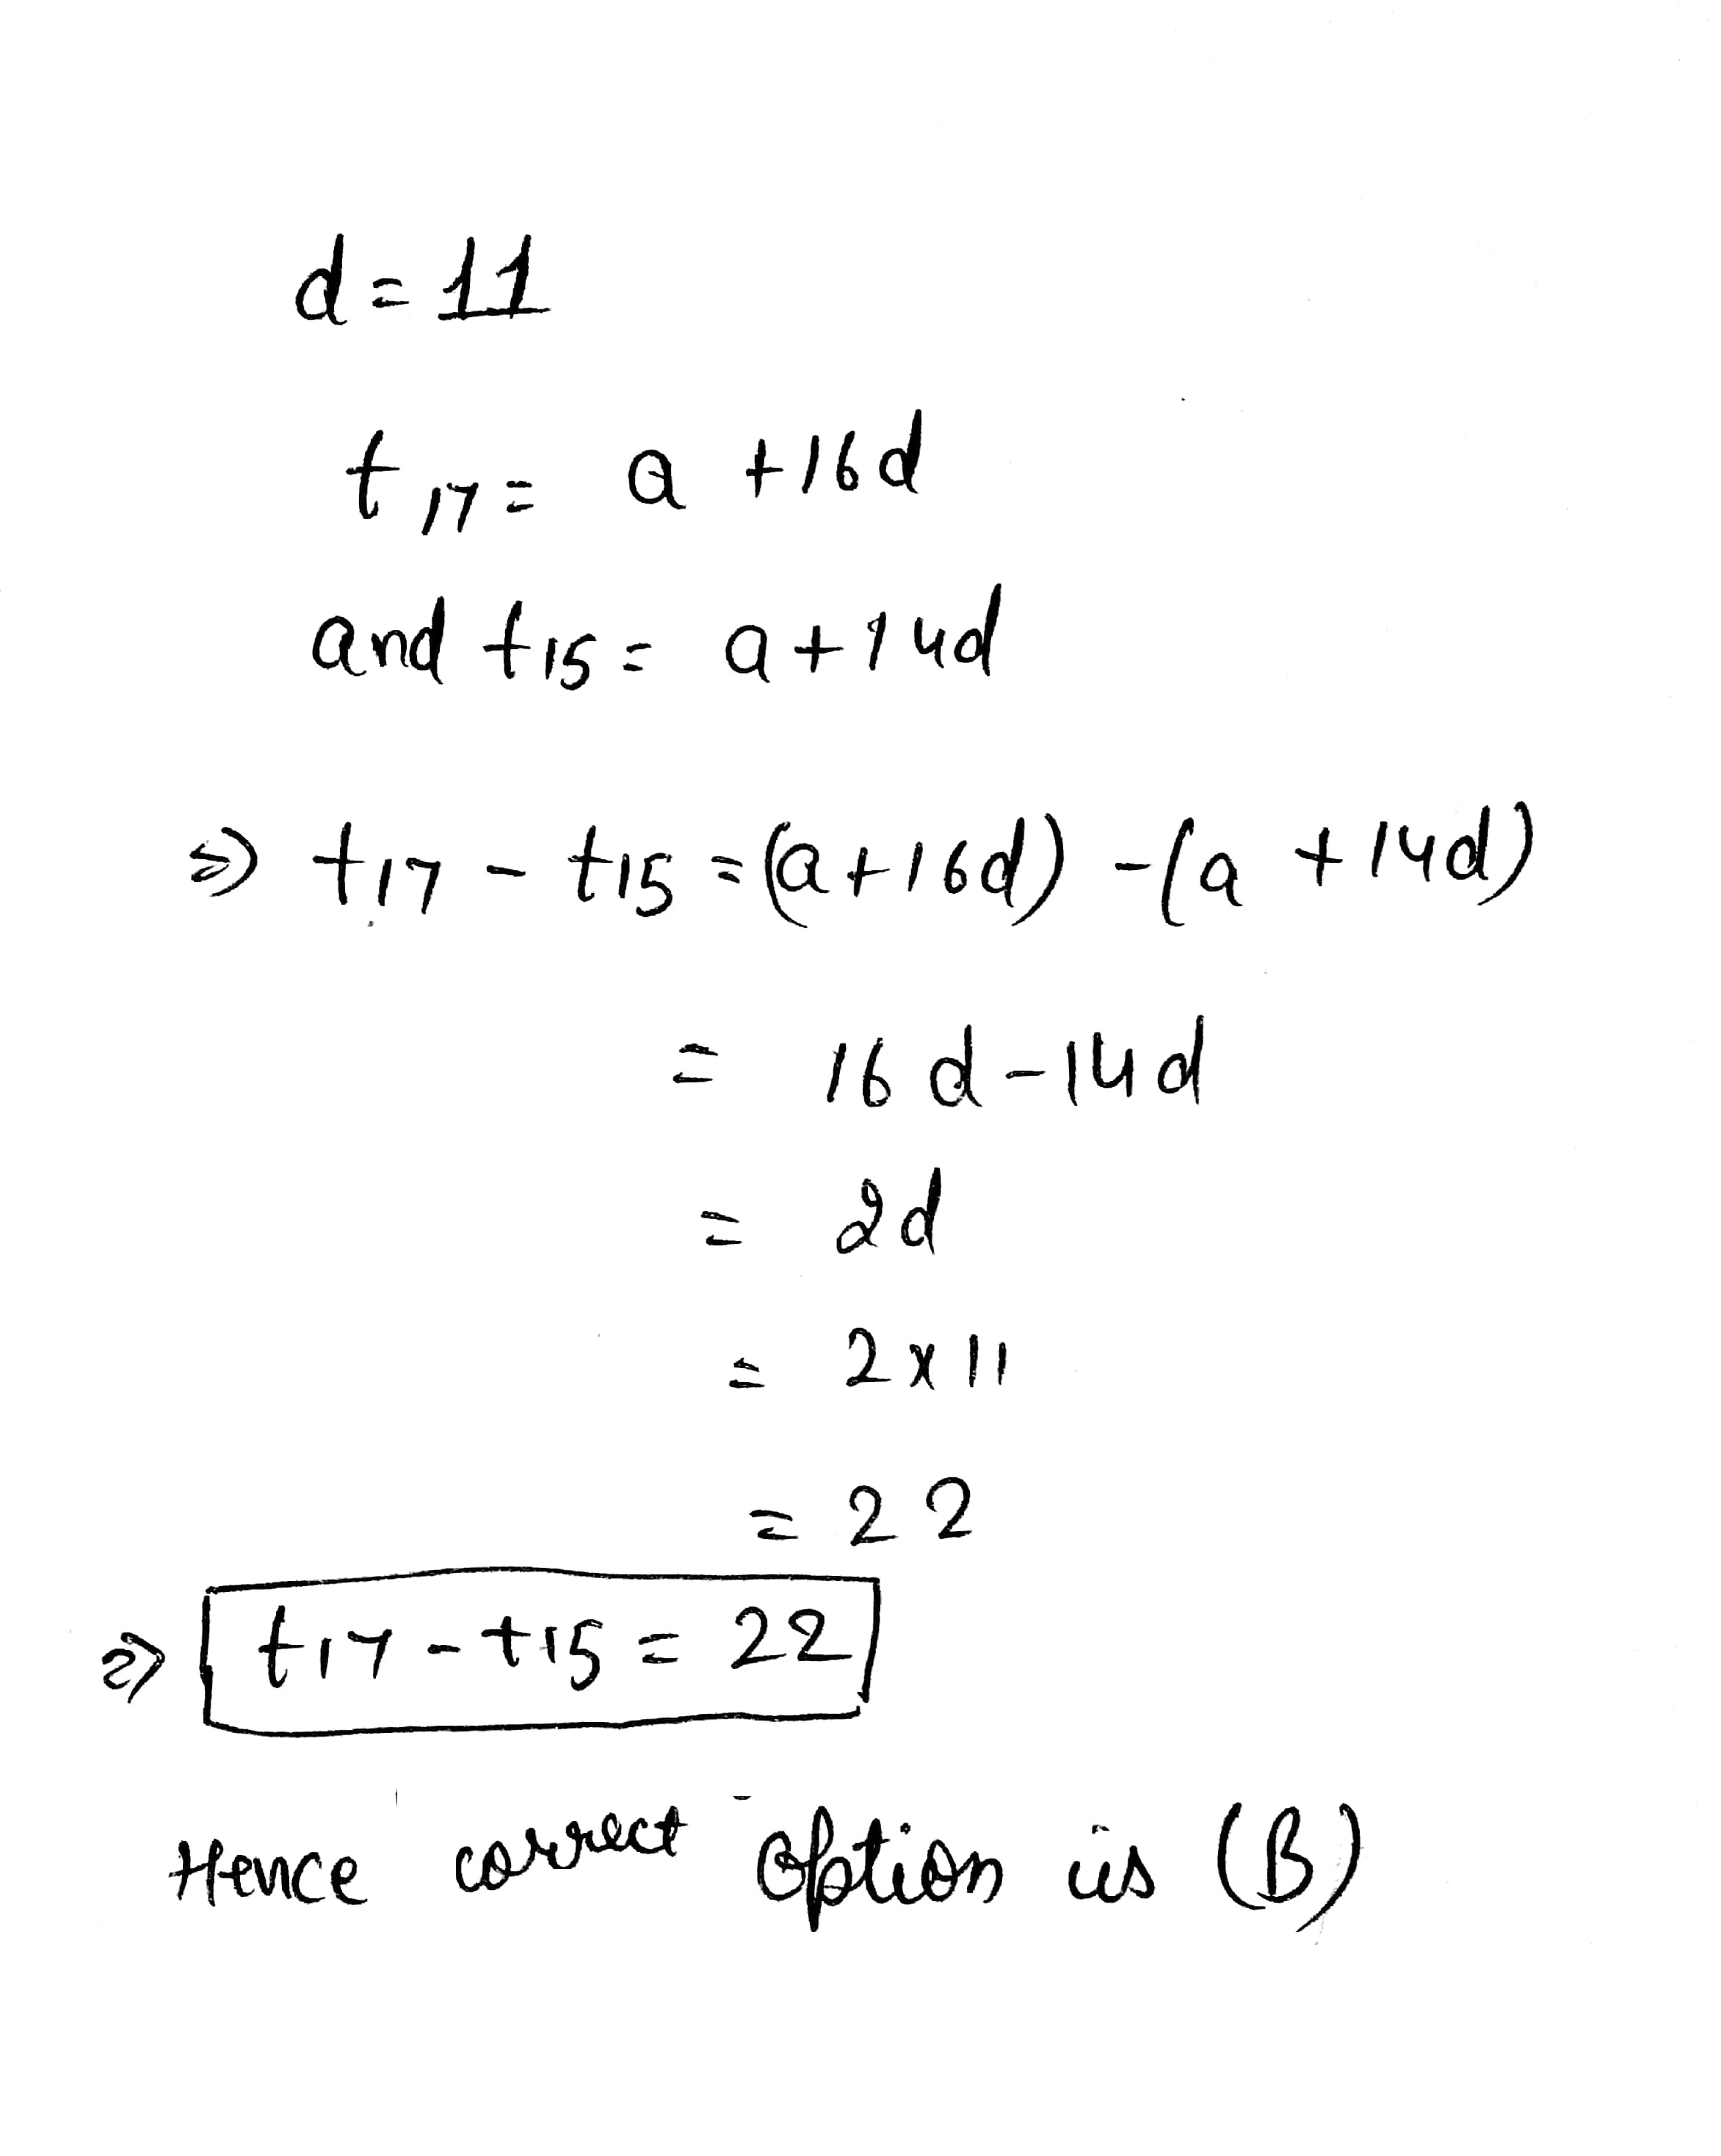 d = 11
t17 = a + 16d
and t15 = a + 14d
⇒ t17 - t15 = (a + 16d) - (a + 14d)
= 16d - 14d
= 2d
= 2 x 11
= 22
⇒ t17 - t15 = 22
Hence correct option is (B)